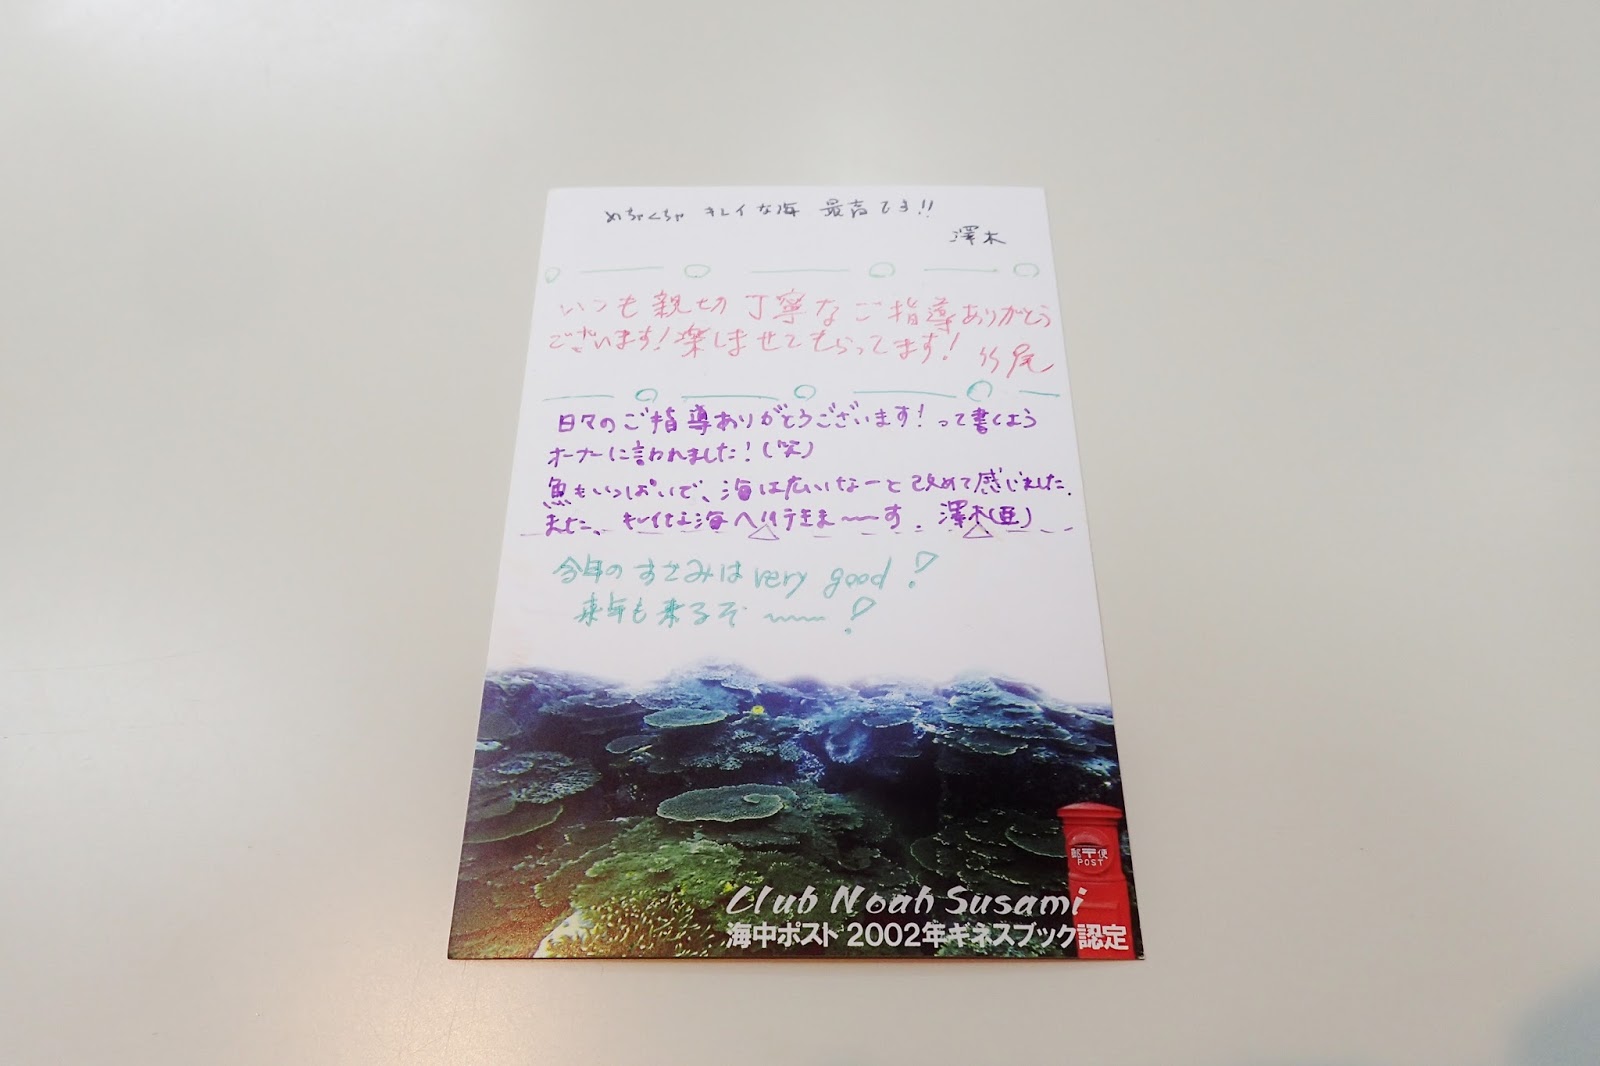 めちゃくちゃ キレイな海 最高です!!
澤木
いつも親切丁寧なご指導ありがとう
ございます!楽しませてもらってます! 竹尾
日々のご指導ありがとうございます!って書くよう
オーナーに言われました!(笑)
魚もいっぱいで、海は広いなーと改めて感じました.
また、キレイな海へ行きま〜〜す. 澤木(亜)
今年のすさみは very good!
来年も来るぞ 〜〜〜!
郵〒便
POST
Club Noah Susami
海中ポスト 2002年ギネスブック認定